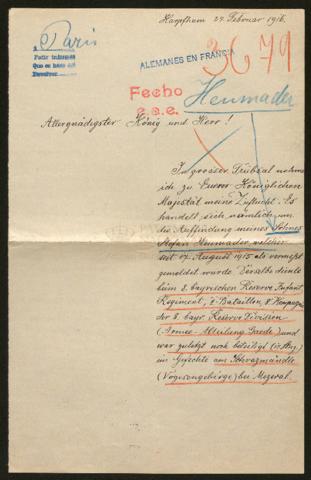 Harpfham 24. Februar 1916.
a Paris
ALEMANES EN FRANCIA
3679
Fecho
e.a.e.
Heumader
Allergnädigster König und Herr!
In grosser Trübsal nehme
ich zu Eurer Königlichen
Majestät meine Zuflucht. Es
handelt sich nämlich um
die Auffindung meines Sohnes
Stefan Heumader, welcher
seit 17. August 1915 als vermißt
gemeldet wurde. Derselbe diente
beim 8. bayrischen Reserve Infant.
Regiment, 2. Bataillon, 8. Kompagnie
der 8. bayr. Reserve Division
(Armee-Abteilung Gaede) und
war zuletzt noch beteiligt
im Gefechte am Schrazmändle
(Vogesengebirge) bei Mezeral.